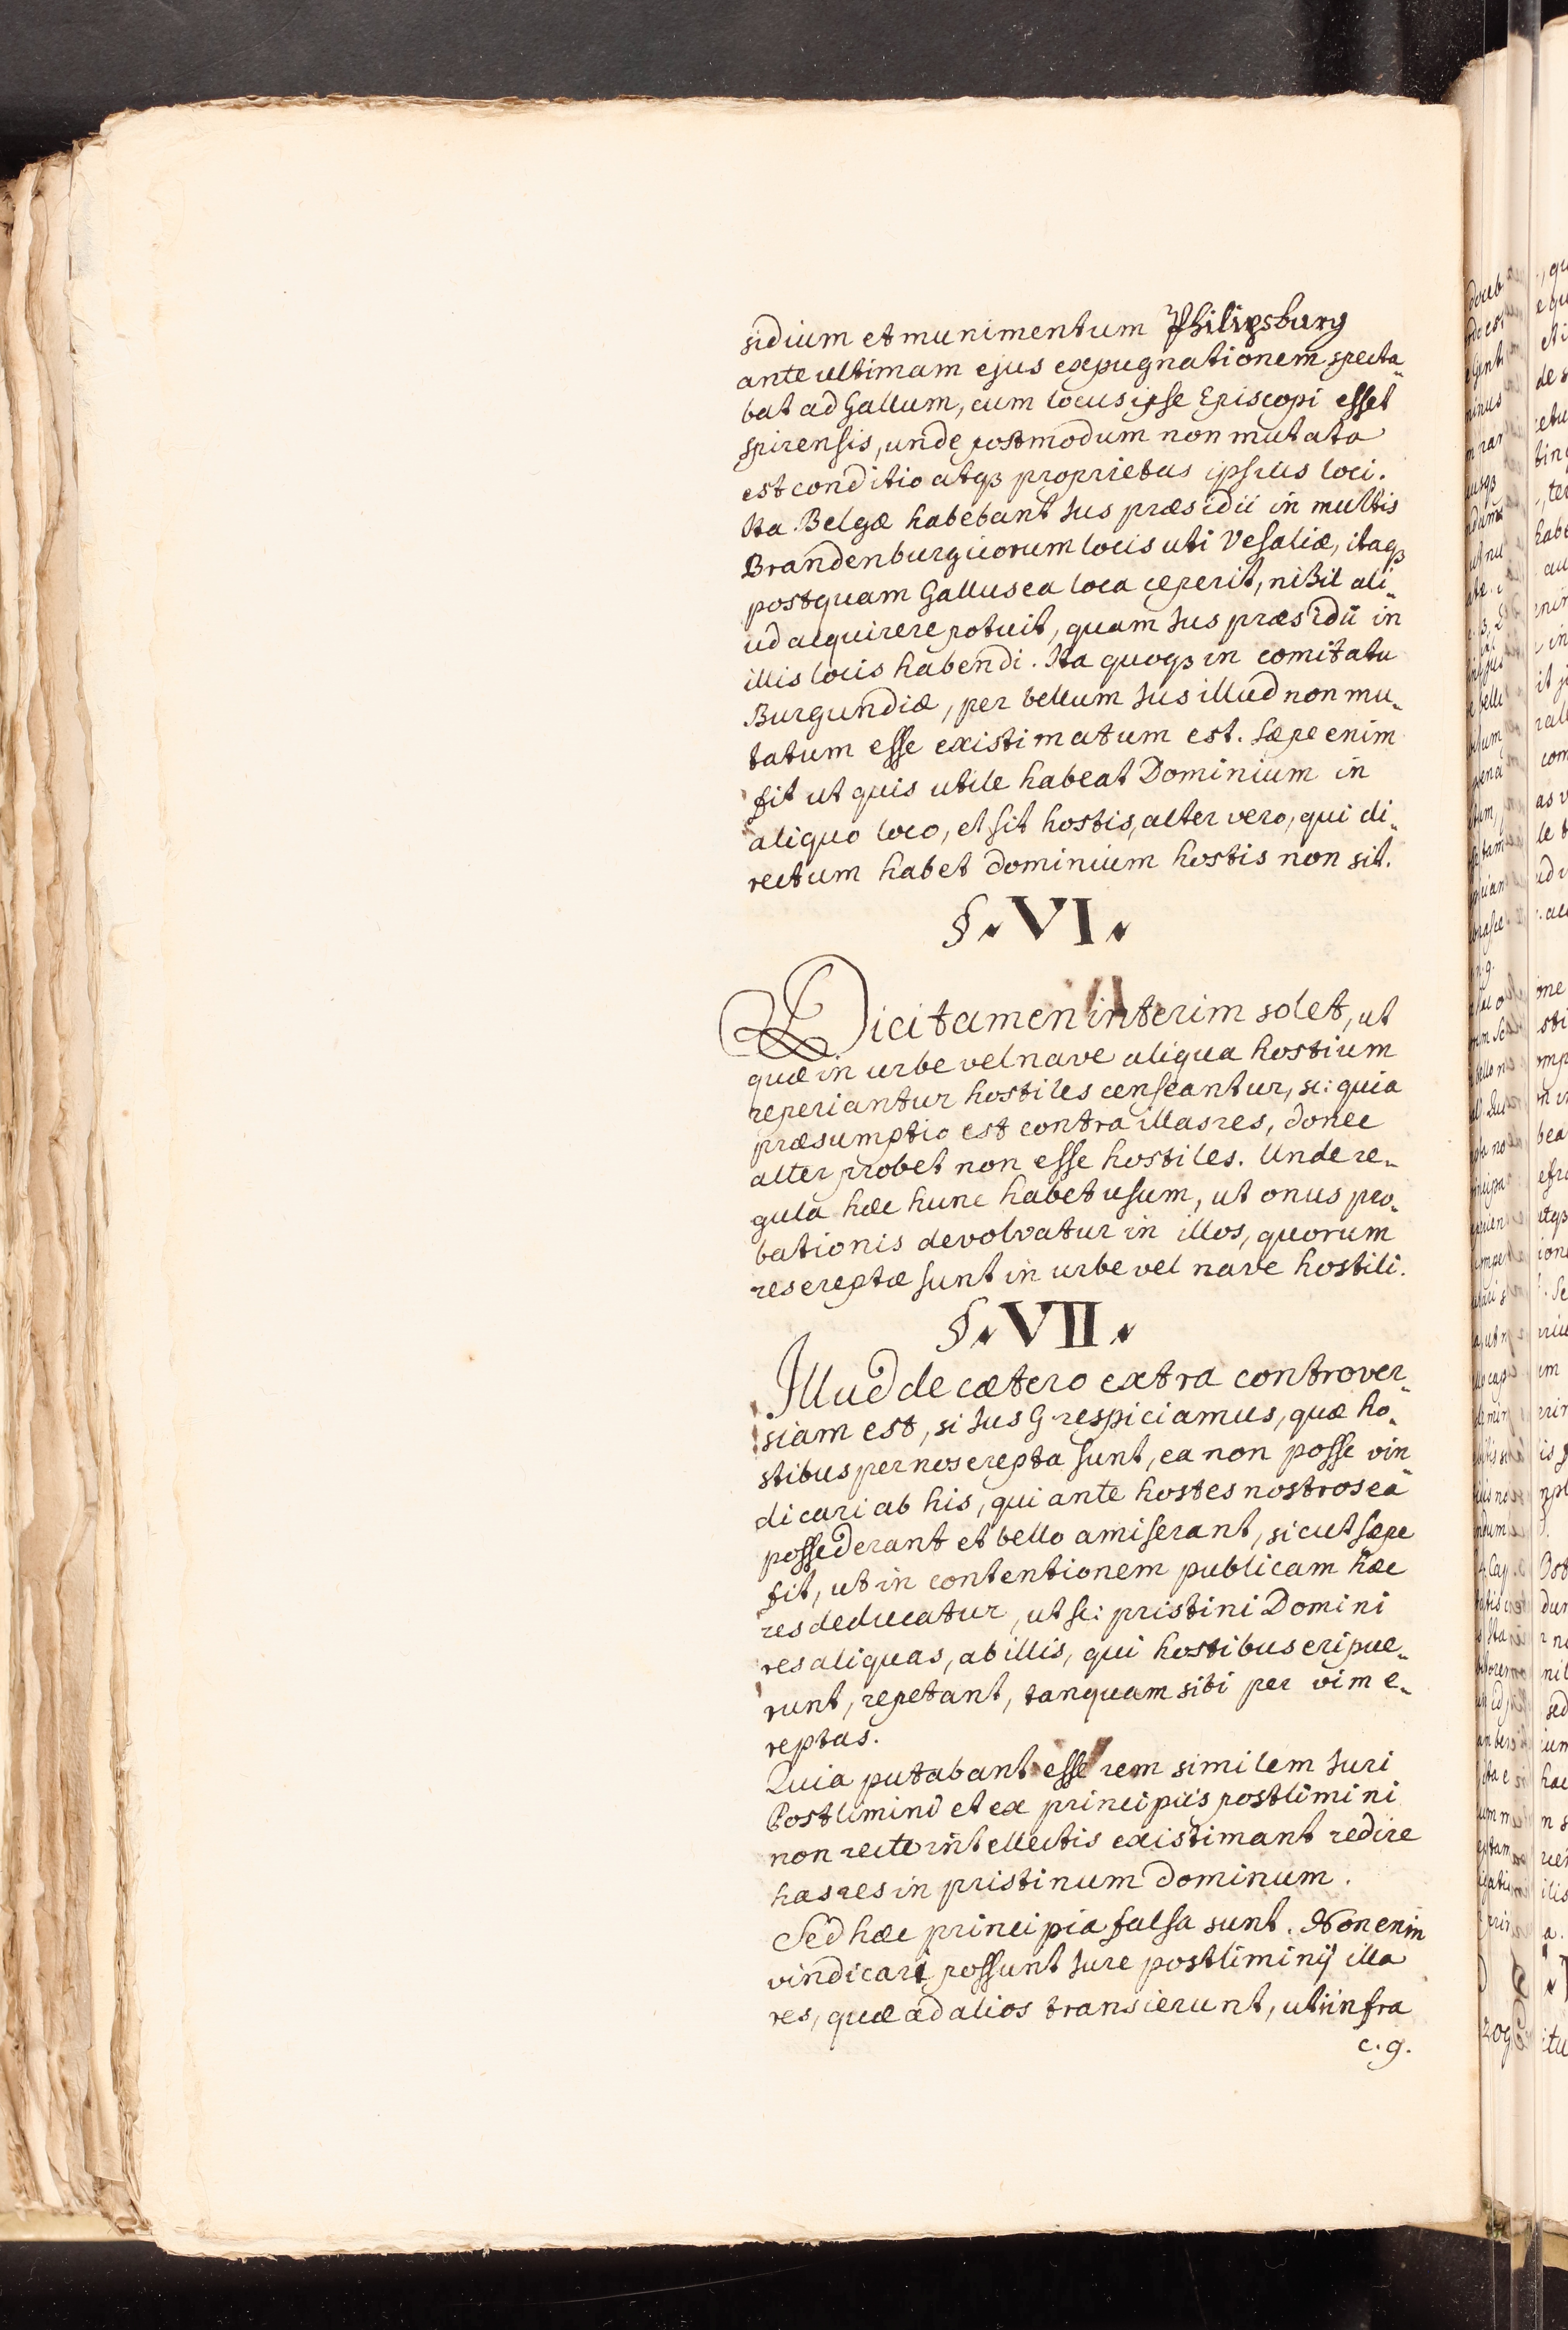 sidium et munimentum Philipsburg
ante ultimam ejus expugnationem specta-
bat ad Gallum, cum locus ipse Episcopi esset
spirensis, unde postmodum non mutata
est conditio atqꝫ proprietas ipsius loci.
Ita Belgæ habebant Jus præsidii in multis
Brandenburgicorum locis uti Vesaliæ, itaqꝫ
postquam Gallus ea loca ceperit, nihil ali-
ud acquirere potuit, quam Jus præsidii in
illis locis habendi. Ita quoqꝫ in comitatu
Burgundiæ, per bellum Jus illud non mu-
tatum esse existimatum est. Sæpe enim
fit ut quis utile habeat Dominium in
aliquo loco, et sit hostis, alter vero, qui di-
rectum habet dominium hostis non sit.
§. VI.
Dici tamen interim solet, ut
quæ in urbe vel nave aliqua hostium
reperiantur hostiles censeantur, sc: quia
præsumptio est contra illas res, donec
alter probet non esse hostiles. Unde re-
gula hæc hunc habet usum, ut onus pro-
bationis devolvatur in illos, quorum
res ereptæ sunt in urbe vel nave hostili.
§. VII.
Illud de cætero extra controver-
siam est, si Jus G respiciamus, quæ ho-
stibus per nos erepta sunt, ea non posse vin-
dicari ab his, qui ante hostes nostros ea
possederant et bello amiserant, sicut sæpe
fit, ut in contentionem publicam hæc
res deducatur, ut sc: pristini Domini
res aliquas, ab illis, qui hostibus eripue-
runt, repetant, tanquam sibi per vim e-
reptas.
Quia putabant esse rem similem Juri
Postlimini et ex principiis postlimini
non recte intellectis existimant redire
has res in pristinum Dominum.
Sed hæc principia falsa sunt. Non enim
vindicari possunt Jure postliminij illa
res, quæ ad alios transierunt, uti infra
c. 9.